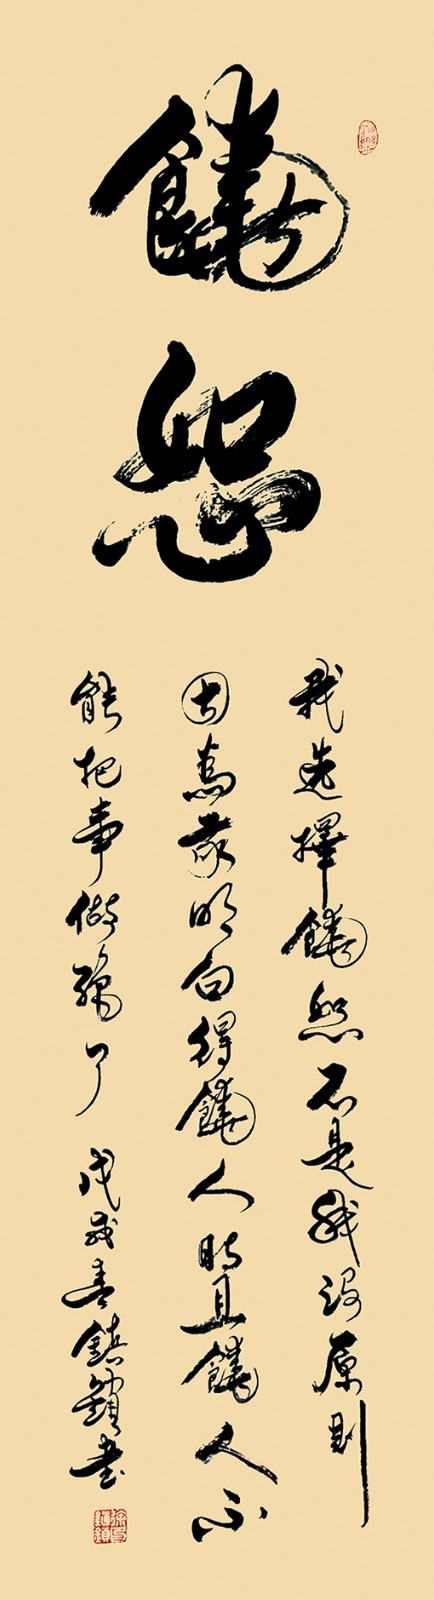 饒恕
我选擇饒恕不是我没原則
因為我明白得饒人時且饒人不
能把事做絕了
戊戌春鎮鎖書